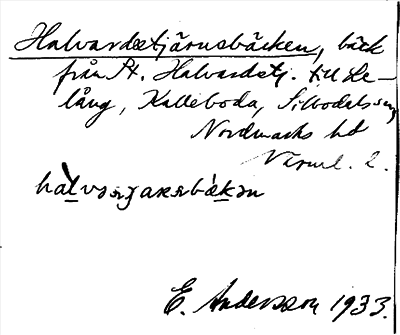 Halvardstjärnsbäcken, bäck
från St. Halvardstj. till Le-
lång, Kalleboda, Silbodals sn
Nordmarks hd
Värml. l.
E. Andersson 1933.